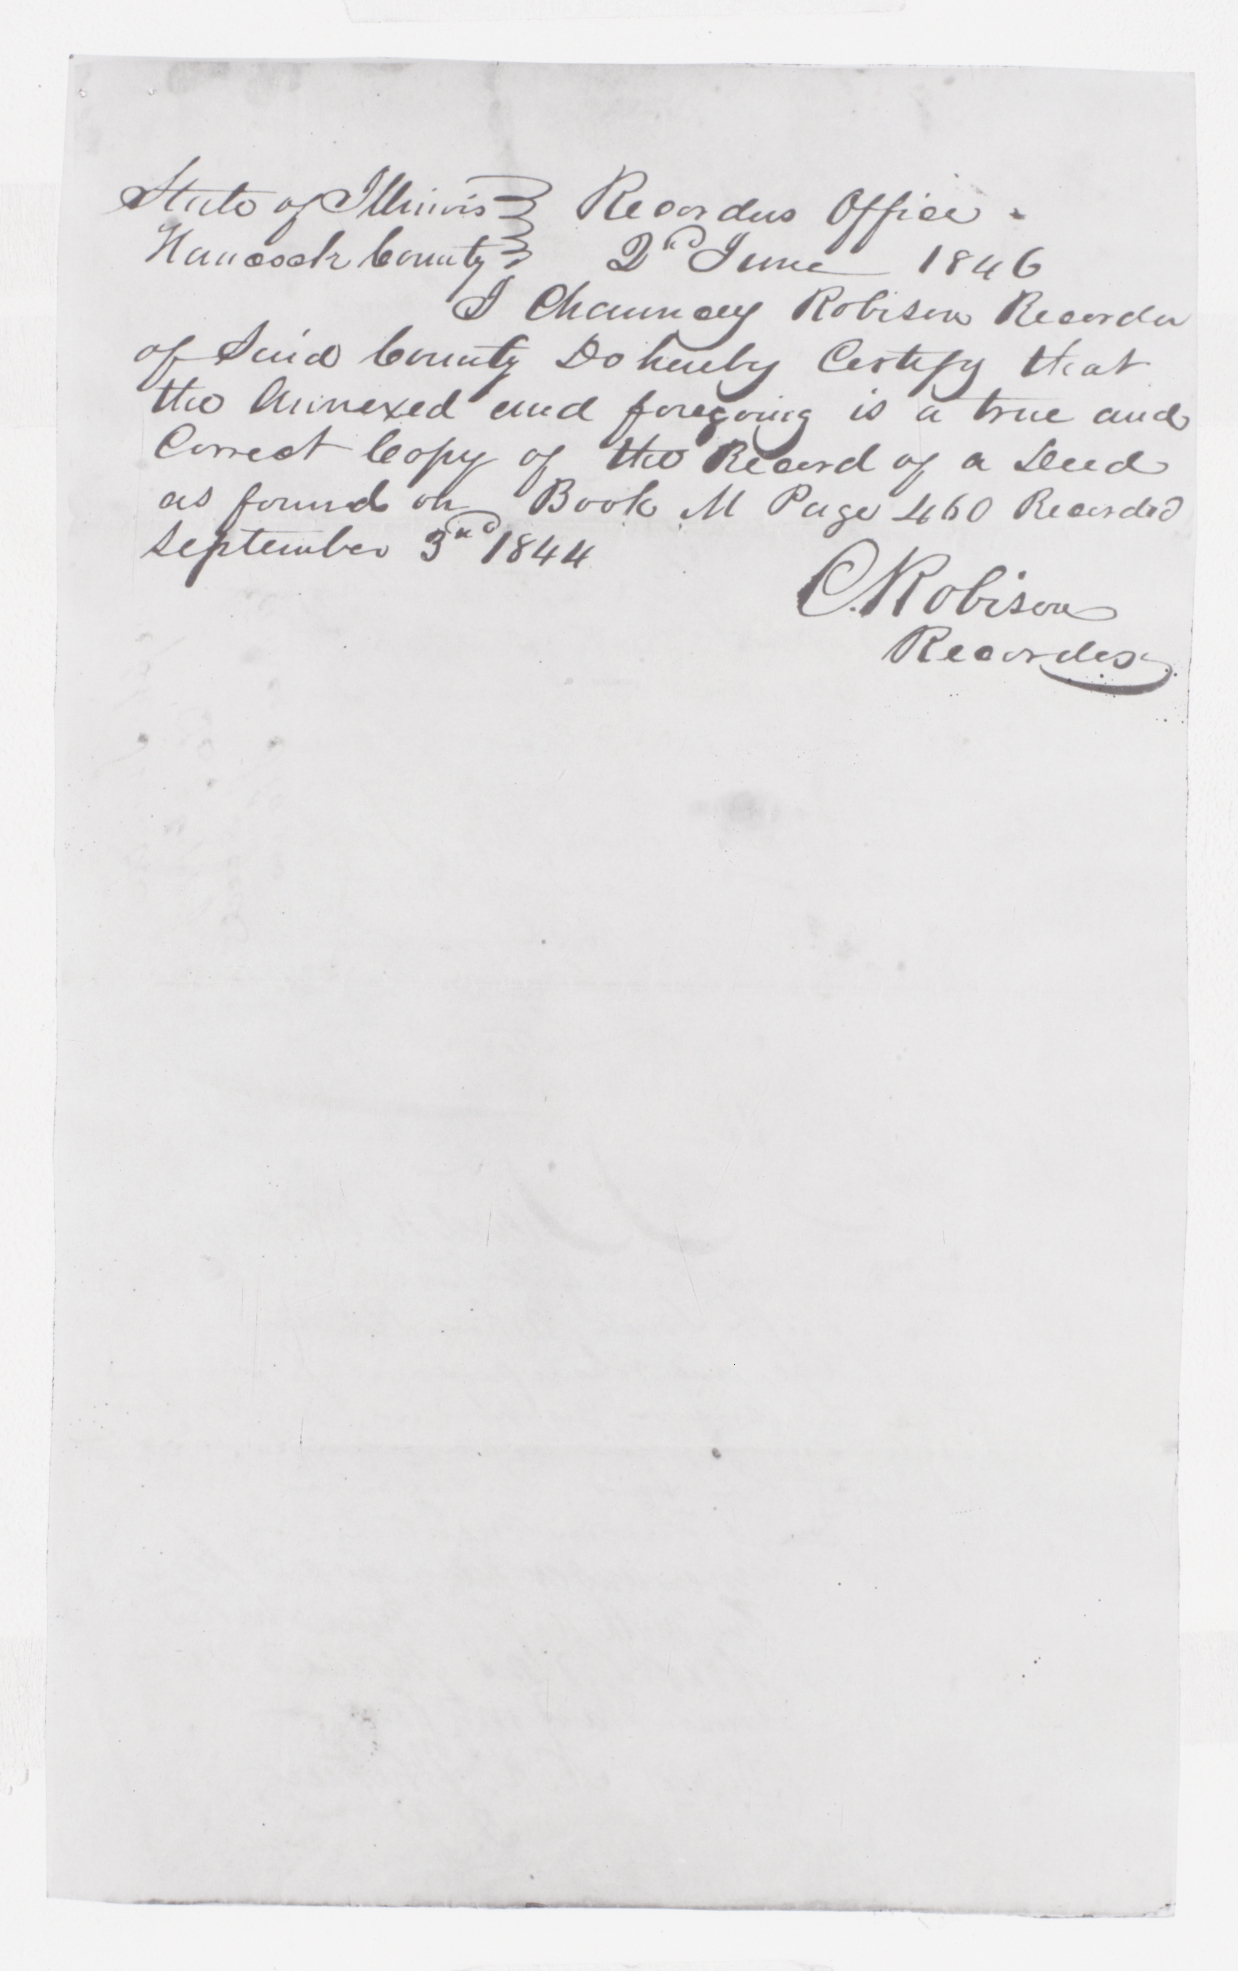 State of Illinois } Recorders Office.
Hancock County } 2nd June 1846
I Chauncey Robison Recorder
of Said County Do hereby Certify that
the Annexed and foregoing is a true and
Correct Copy of the Record of a Deed
as found on Book M Page 460 Recorded
September 3rd 1844
C. Robison
Recorder